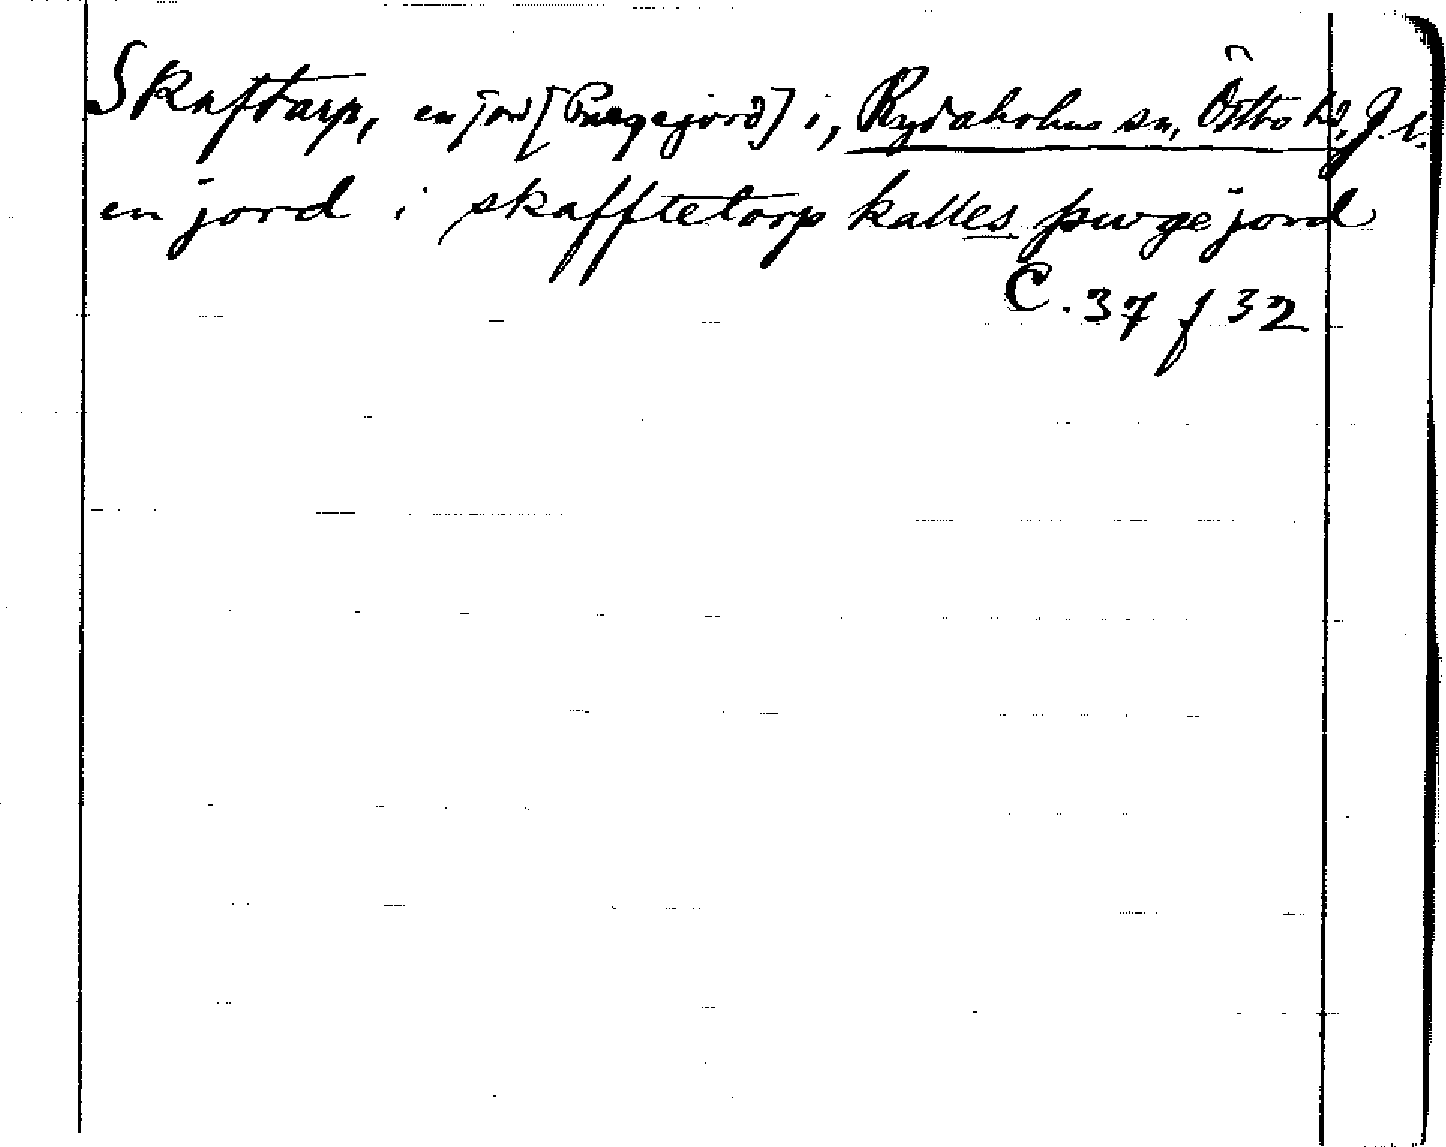 Skaftarp, en jord [Purgejord] i, Rydaholms sn, Östbo hd, J. l.
en jord i skafftetorp kalles purgejord
C. 37 f 32